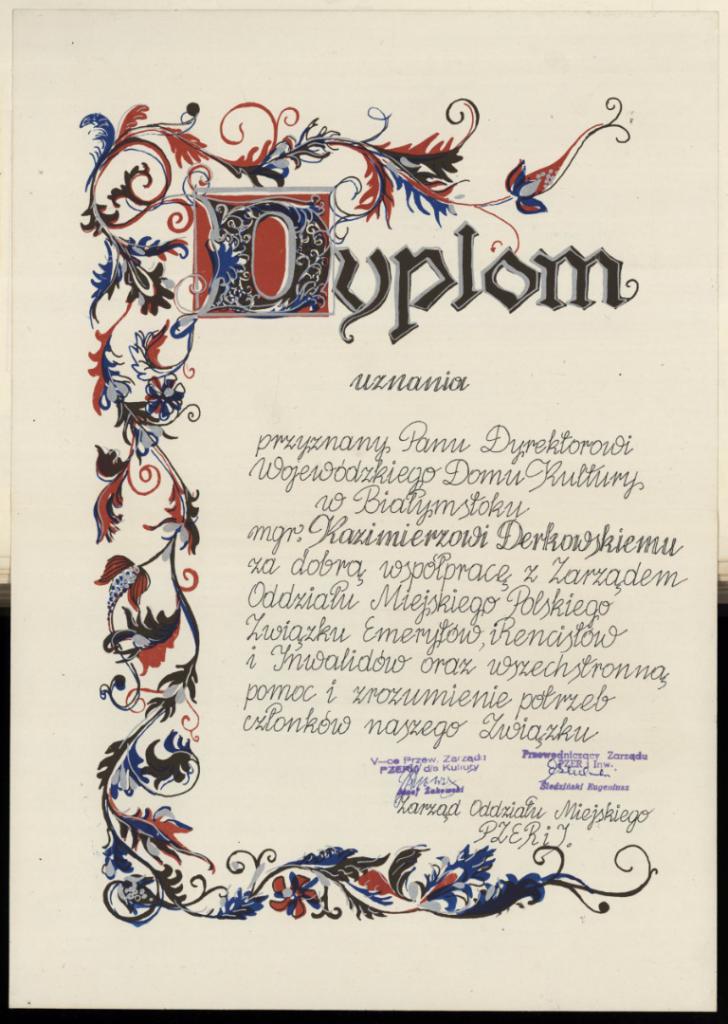 Dyplom
uznania
przyznany Panu Dyrektorowi
Wojewódzkiego Domu Kultury
w Białymstoku
mgr. Kazimierzowi Derkowskiemu
za dobrą współpracę z Zarządem
Oddziału Miejskiego Polskiego
Związku Emerytów, Rencistów
i Inwalidów oraz wszechstronną
pomoc i zrozumienie potrzeb
członków naszego Związku
V-ce Przew. Zarządu
PZERiI dla Kultury
Józef Zakowski
Przewodniczący Zarządu
PZER i Inw.
Siedziński Eugeniusz
Zarząd Oddziału Miejskiego
PZER i I.